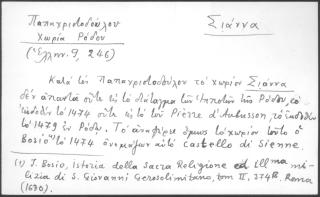 Παπαχριστοδούλου
Χωρία Ρόδου
(Ἑλλην. 9, 246)
Σιάννα
Κατά τὸν Παπαχριστοδούλου τὸ χωρίον Σιάννα
δὲν ἀπαντᾷ οὔτε εἰς τὸ διάταγμα τῶν Ἱπποτῶν τῆς Ρόδου, τὸ
ἐκδοθὲν τὸ 1474 οὔτε εἰς τὸ τοῦ Pierre d'Aubusson τὸ ἐκδοθὲν
τὸ 1479 ἐν Ρόδῳ. Τὸ ἀναφέρει ὅμως τὸ χωρίον τοῦτο ὁ
Bosio τὸ 1474 ὀνομάζων αὐτὸ castello di Sienne.
(1) J. Bosio, Istoria della Sacra Religione ed Ill^ma mi-
lizia di S. Giovanni Gerosolimitano, tom II, 374 Roma
(1630).